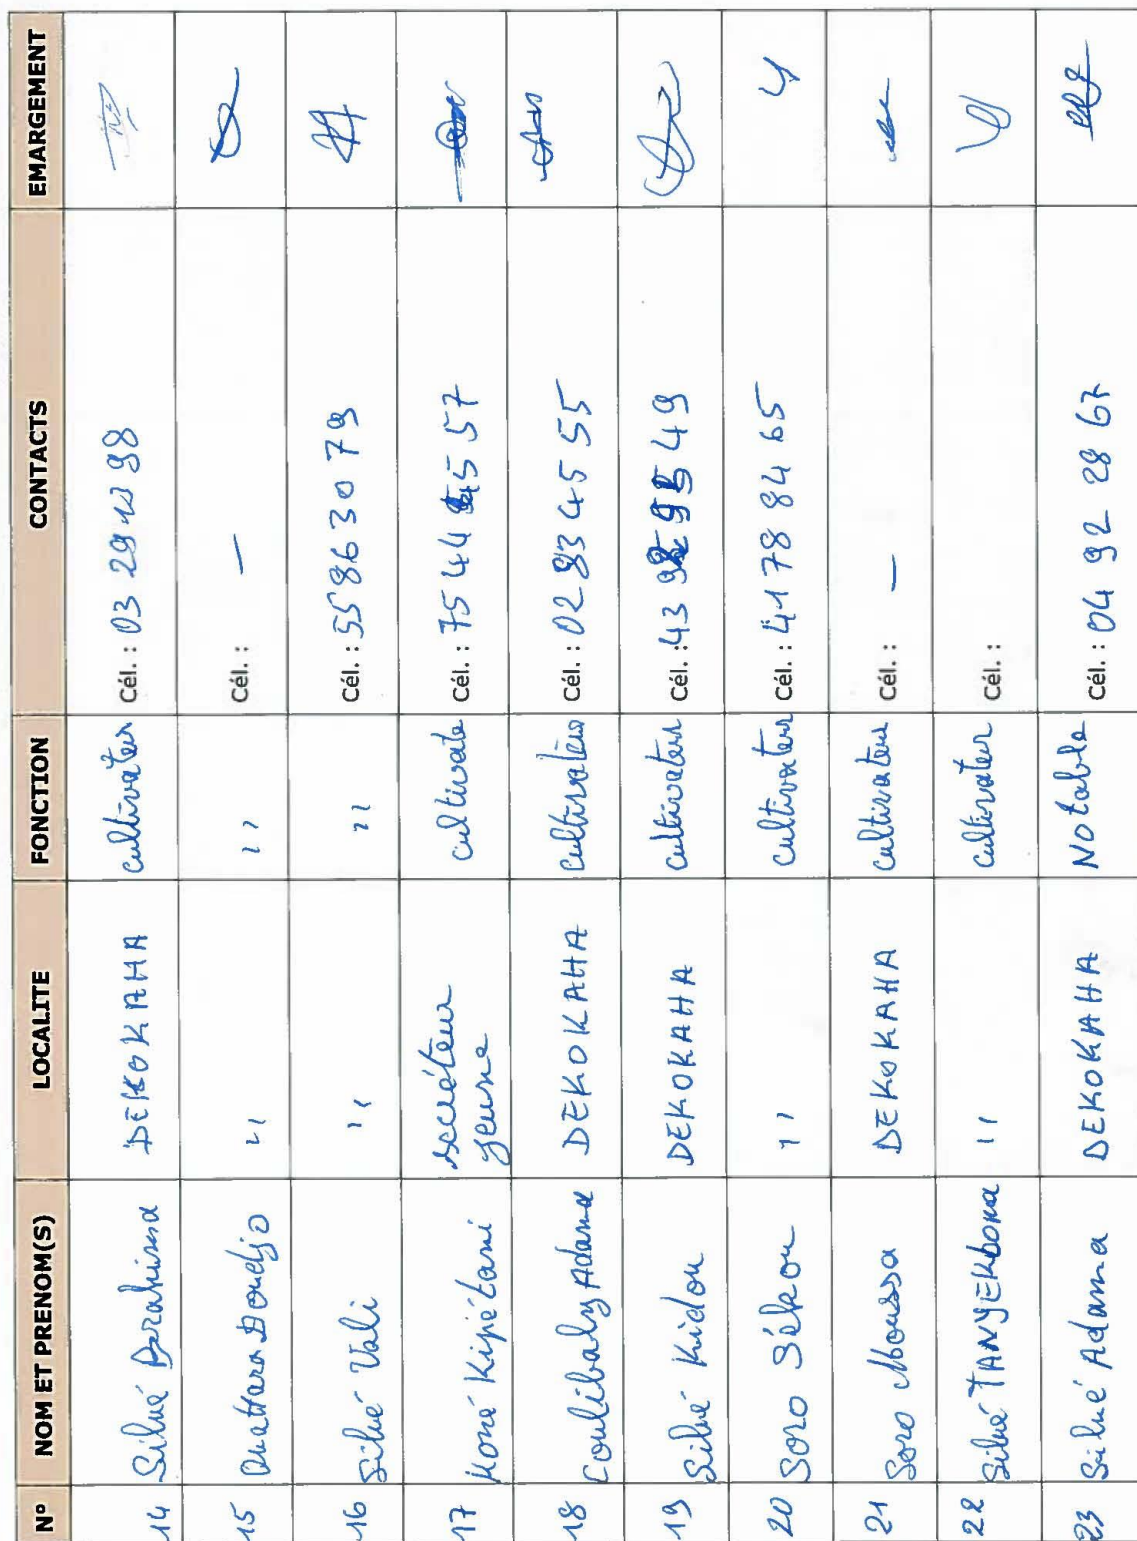 N° NOM ET PRENOM(S) LOCALITE FONCTION CONTACTS EMARGEMENT
14 Silué Brahima DEKOKAHA cultivateur Cél. : 03 29 12 98
15 Ouattara Doudjo 〃 〃 Cél. : —
16 Silué Vali 〃 〃 Cél. : 55 86 30 79
17 Koné Kipiétani secréteur cultivate Cél. : 75 44 45 57
jeune
18 Coulibaly Adama DEKOKAHA cultivateur Cél. : 02 83 45 55
19 Silué Kidou DEKOKAHA cultivateur Cél. : 43 95 49
20 Soro Sékou 〃 cultivateur Cél. : 41 78 84 65
21 Soro Moussa DEKOKAHA cultivateur Cél. : —
22 Silué TANYEKbona 〃 cultivateur Cél. :
23 Silué Adama DEKOKAHA Notable Cél. : 04 92 28 67